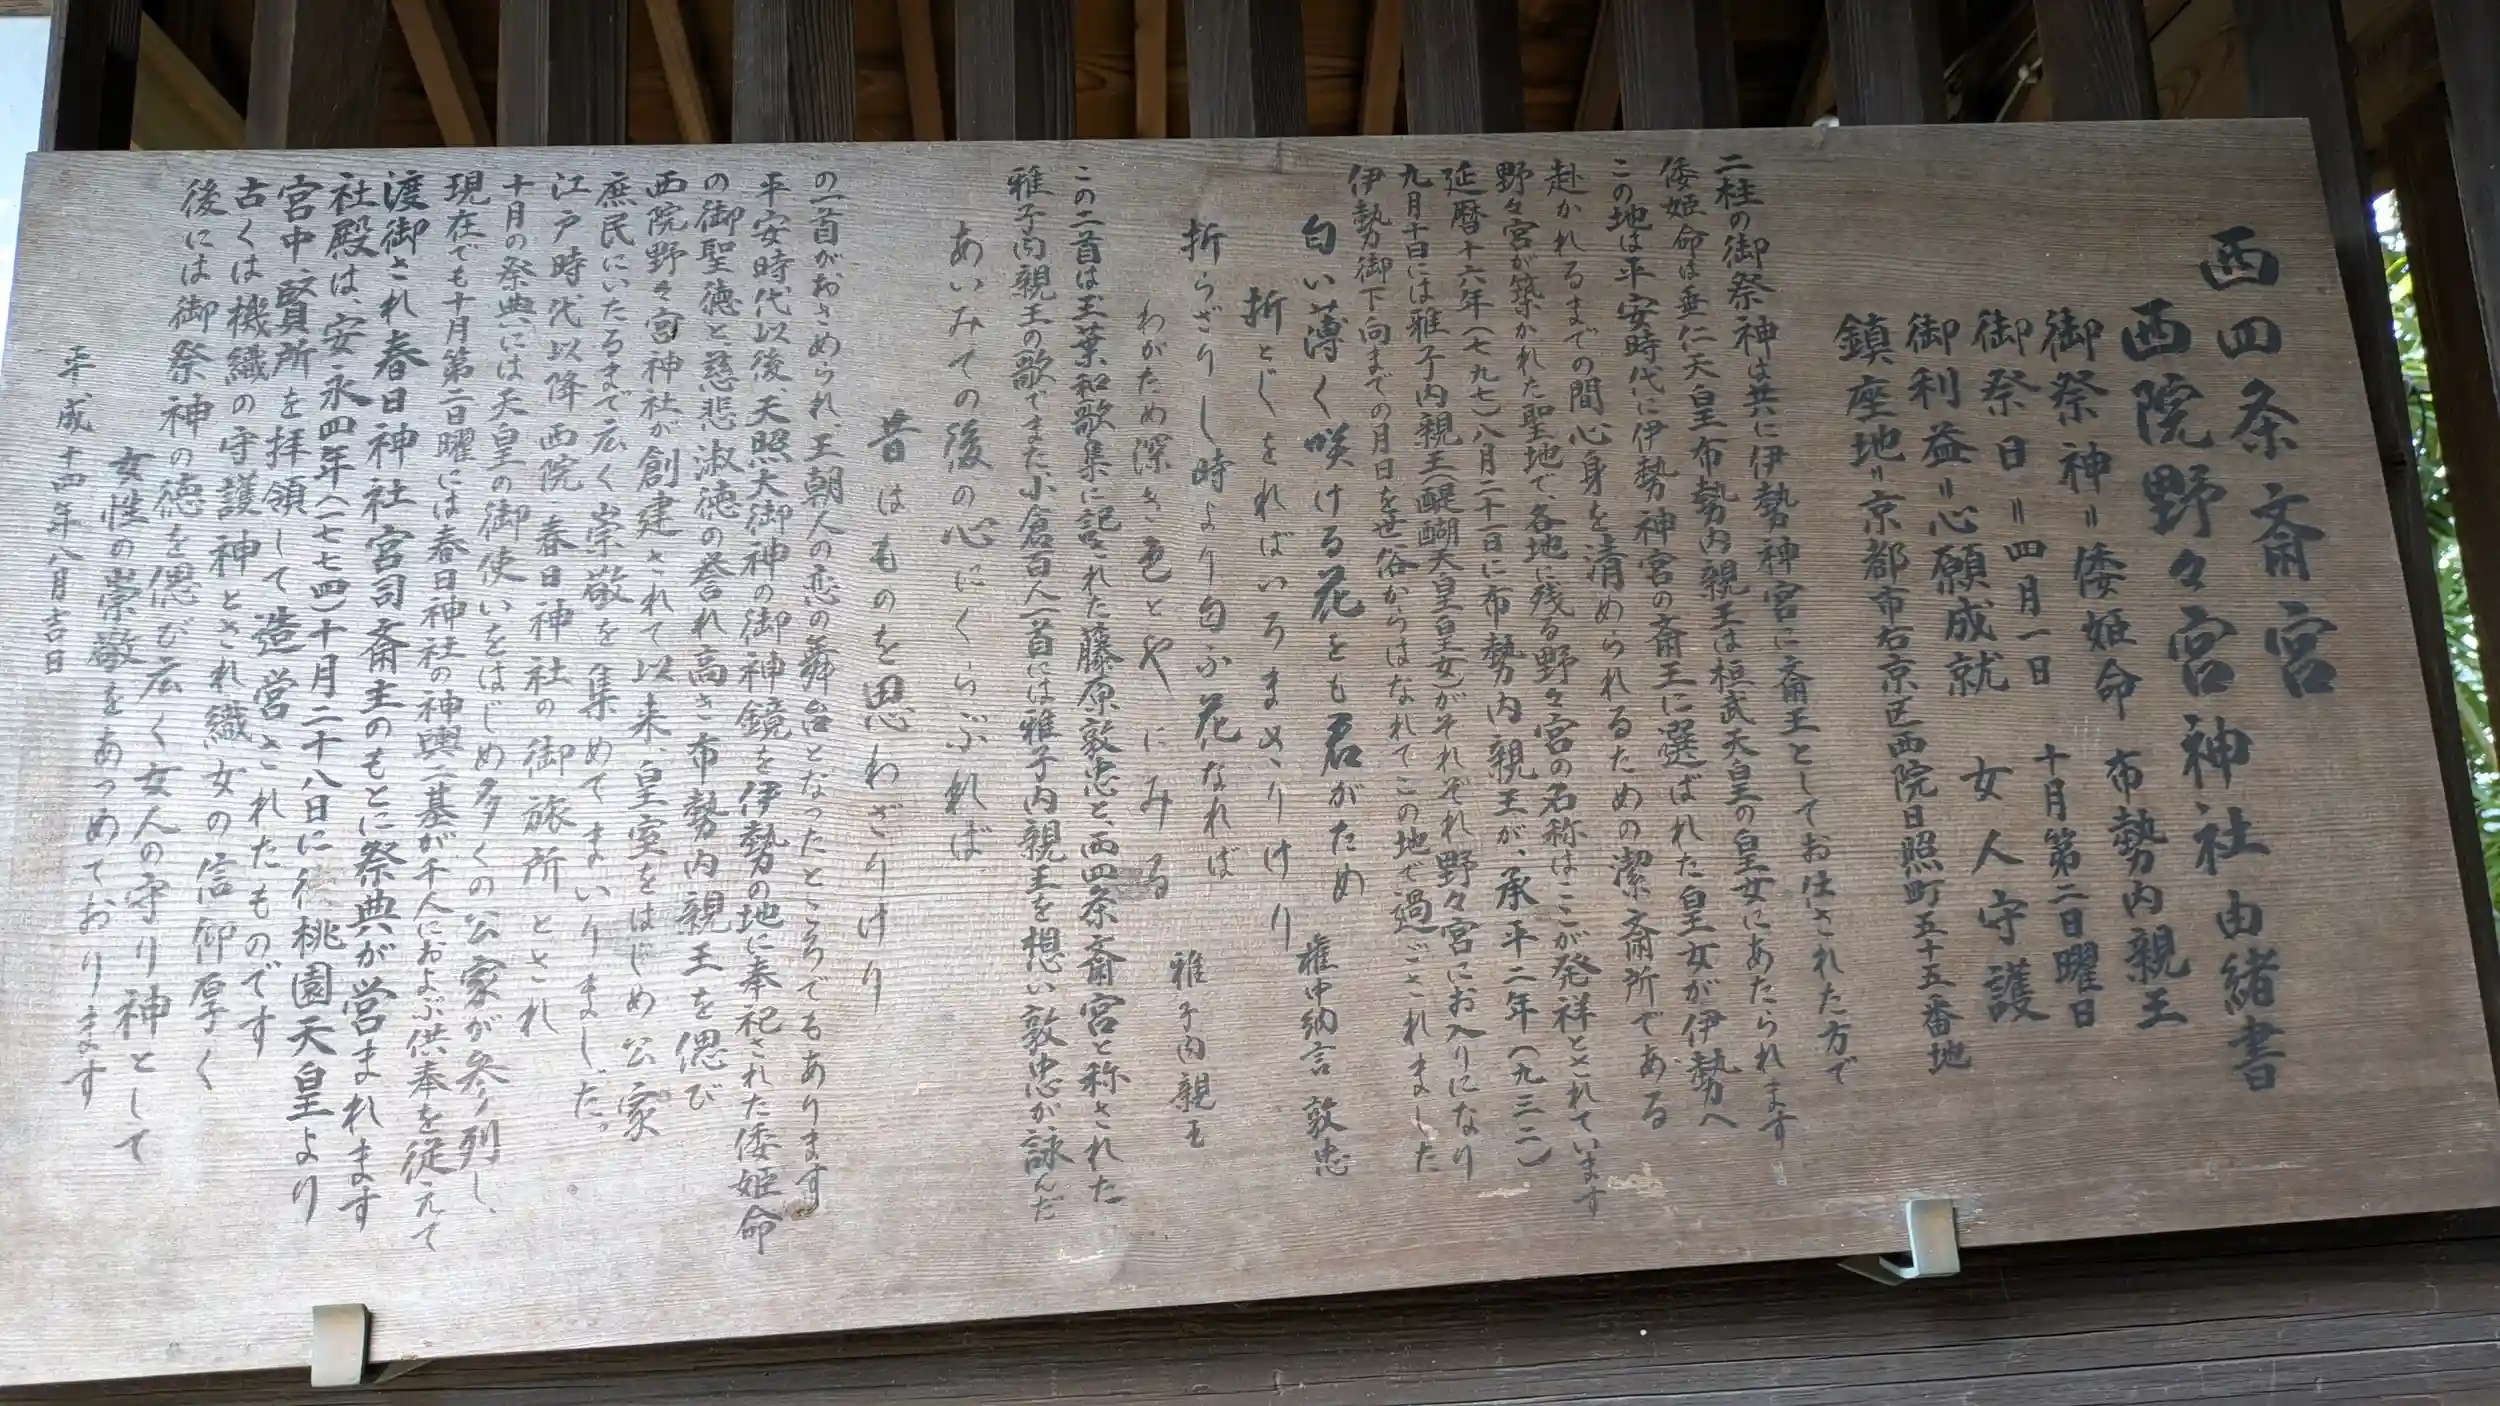 西四条斎宮
西院野々宮神社由緒書
御祭神=倭姫命 布勢内親王
御祭日=四月一日 十月第二日曜日
御利益=心願成就 女人守護
鎮座地=京都市右京区西院日照町五十五番地
二柱の御祭神は共に伊勢神宮に斎王としてお仕された方で
倭姫命は垂仁天皇布勢内親王は桓武天皇の皇女にあたられます
この地は平安時代に伊勢神宮の斎王に選ばれた皇女が伊勢へ
赴かれるまでの間心身を清められるための潔斎所である
野々宮が築かれた聖地で、各地に残る野々宮の名称はここが発祥とされています
延暦十六年(七九七)八月二十一日に布勢内親王が、承平二年(九三二)
九月十日には雅子内親王(醍醐天皇皇女)がそれぞれ野々宮にお入りになり
伊勢御下向までの月日を世俗からはなれてこの地で過ごされました
匂い薄く咲ける花をも君がため
折としをればいろまさりけり 権中納言 敦忠
折らざりし時より匂ふ花なれば
わがため深き色とやにみる 雅子内親王
この二首は玉葉和歌集に記された藤原敦忠と、西四条斎宮と称された
雅子内親王の歌でまた小倉百人一首には雅子内親王を想い敦忠が詠んだ
あいみての後の心にくらぶれば
昔はものを思わざりけり
の一首がおさめられ、王朝人の恋の舞台となったところでもあります
平安時代以後、天照大御神の御神鏡を伊勢の地に奉祀された倭姫命
の御聖徳と、慈悲、淑徳の誉れ高き布勢内親王を偲び
西院野々宮神社が創建されて以来、皇室をはじめ公家
庶民にいたるまで広く崇敬を集めてまいりました。
江戸時代以降西院春日神社の御旅所とされ
十月の祭典には天皇の御使いをはじめ多くの公家が参列し、
現在でも十月第二日曜には春日神社の神輿二基が千人におよぶ供奉を従えて
渡御され春日神社宮司斎主のもとに祭典が営まれます
社殿は、安永四年(一七七四)十月二十八日に後桃園天皇より
宮中、賢所を拝領して造営されたものです
古くは機織の守護神とされ織女の信仰厚く
後には御祭神の徳を偲び広く女人の守り神として
女性の崇敬をあつめております
平成十四年八月吉日